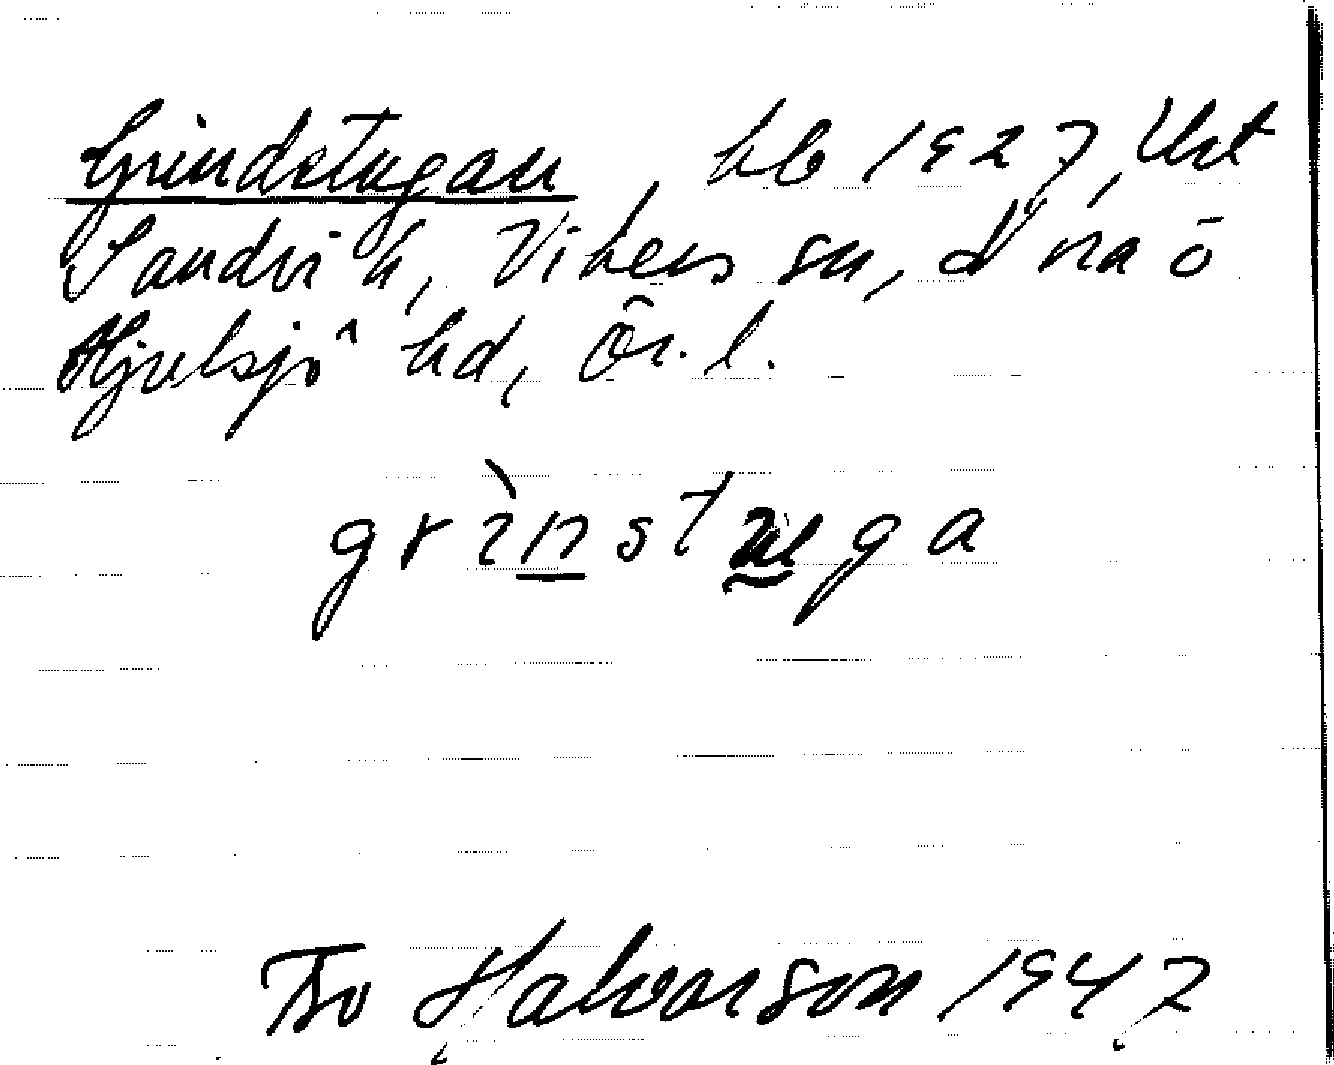 Grindstugan, hb 1927, Ukt
Sandvik, Vikers sn, Nora o
Hjulsjö hd, Ör. l.
grìnstuga
Bo Halvarson 1947